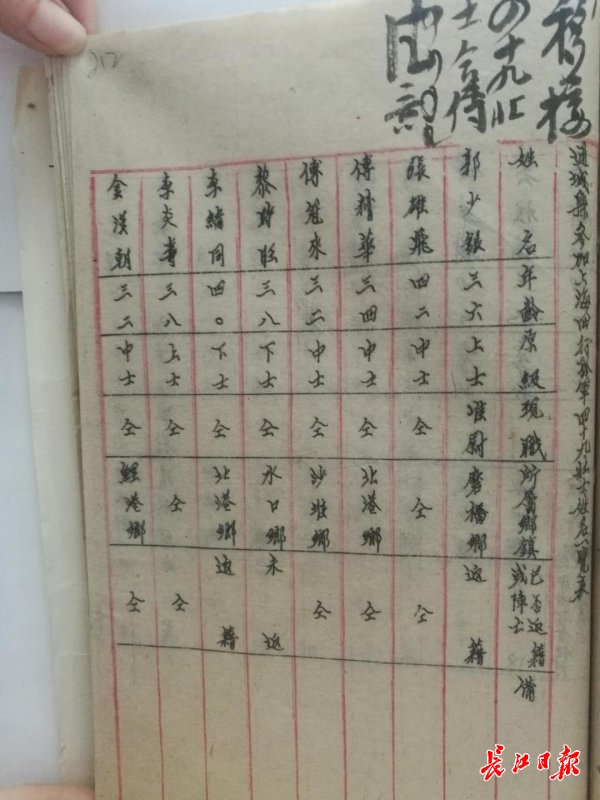 通城縣參加上海四行孤軍四十九壯士姓名一覽表
姓名 年齡 原級 現職 所屬鄉鎮 已否返籍或陣亡 備
郭少銀 三六 上士 准尉 磨橋鄉 返籍
張雄飛 四二 中士 仝 仝 仝
傅精華 三四 中士 仝 北港鄉 仝
傅冠來 三二 中士 仝 沙堆鄉 仝
黎時旺 三八 下士 仝 水口鄉 未返
李緒同 四〇 下士 仝 北港鄉 返籍
李炎書 三八 上士 仝 仝 仝
金漢朝 三二 中士 仝 鯉港鄉 仝
212
長江日报